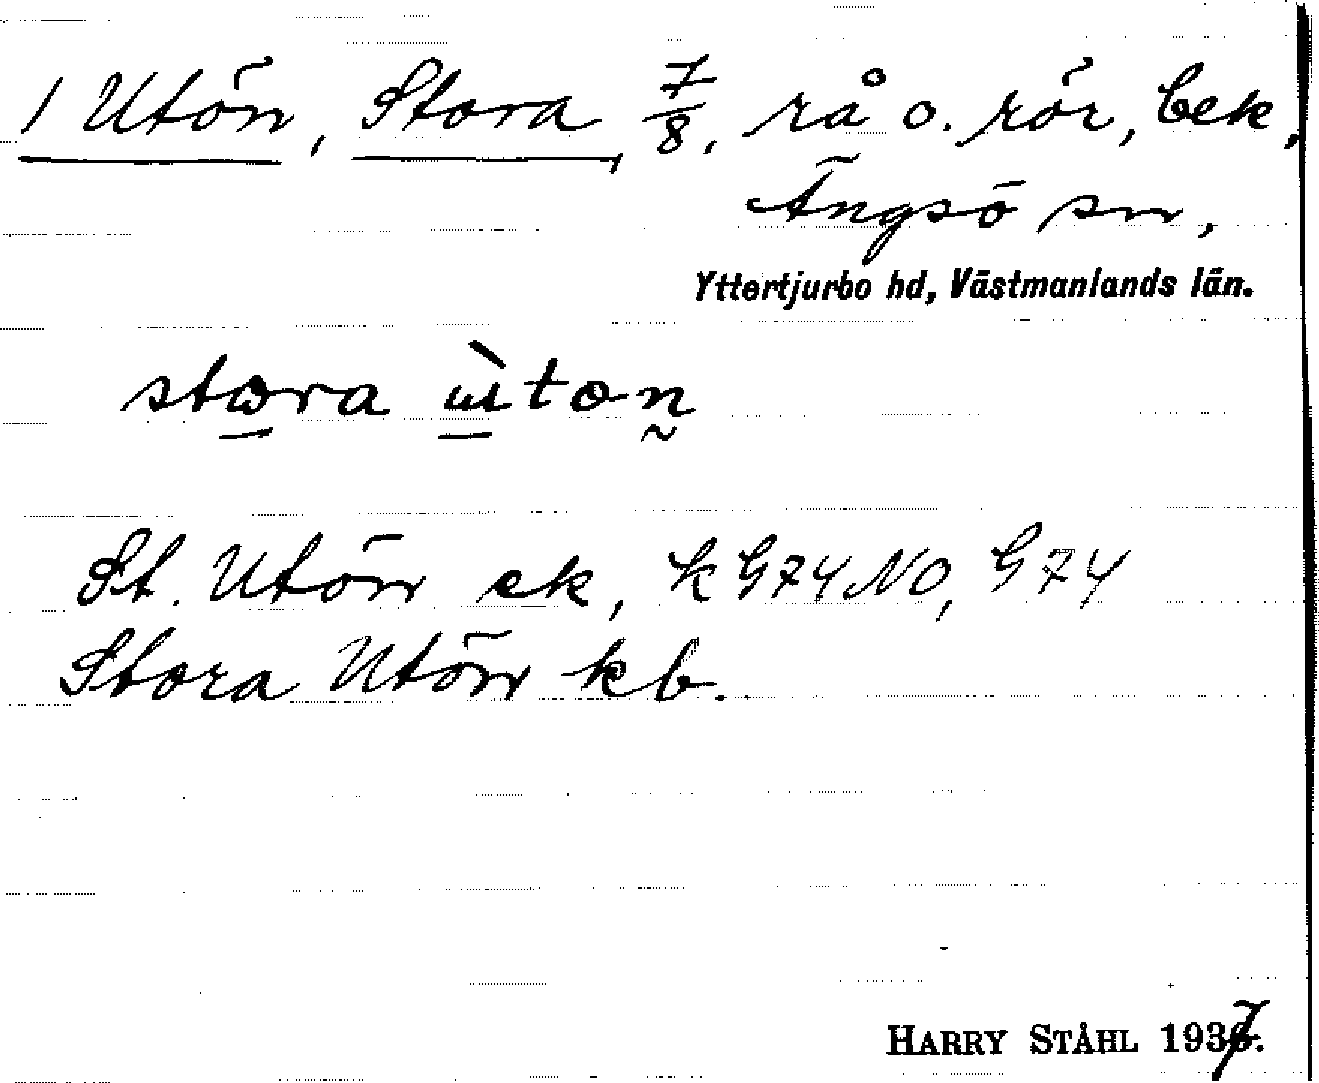 1 Utön, Stora, 7/8, rå o. rör, bek,
Ängsö sn,
Yttertjurbo hd, Västmanlands län.
stora ùton
St. Utön ek, k G74NO, G74
Stora Utön kb.
HARRY STÅHL 1937.